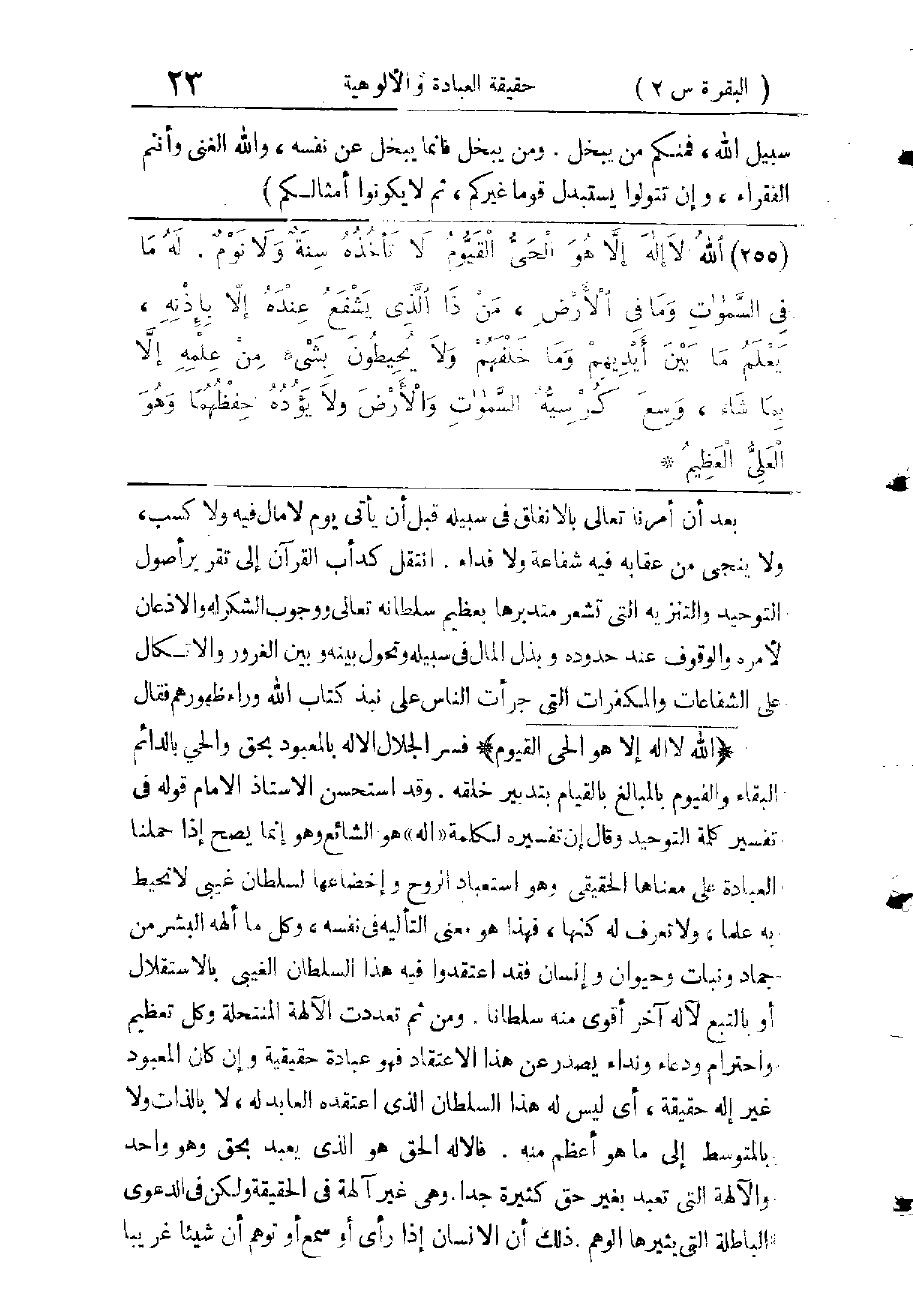 ( البقرة س ٢ ) حقيقة العبادة والألوهية ٢٣
سبيل الله ، فمنكم من يبخل . ومن يبخل فانما يبخل عن نفسه ، والله الغنى وأنتم
الفقراء ، وإن تتولوا يستبدل قوما غيركم ، ثم لا يكونوا أمثالكم )
(٢٥٥) ٱللهُ لَا إِلٰهَ إِلَّا هُوَ الْحَيُّ الْقَيُّومُ لَا تَأْخُذُهُ سِنَةٌ وَلَا نَوْمٌ . لَهُ مَا
فِي السَّمٰوٰتِ وَمَا فِي ٱلْأَرْضِ ، مَنْ ذَا ٱلَّذِى يَشْفَعُ عِنْدَهُ إِلَّا بِإِذْنِهِ ،
يَعْلَمُ مَا بَيْنَ أَيْدِيهِمْ وَمَا خَلْفَهُمْ وَلَا يُحِيطُونَ بِشَىْءٍ مِنْ عِلْمِهِ إِلَّا
بِمَا شَاءَ ، وَسِعَ كُرْسِيُّهُ السَّمٰوٰتِ وَالْأَرْضَ ولَا يَؤُدُهُ حِفْظُهُمَا وَهُوَ
الْعَلِىُّ الْعَظِيمُ *
بعد أن أمرنا تعالى بالانفاق فى سبيله قبل أن يأتى يوم لا مال فيه ولا كسب ،
ولا ينجى من عقابه فيه شفاعة ولا فداء . انتقل كدأب القرآن إلى تقرير أصول
التوحيد والتنزيه التى تشعر متدبرها بعظيم سلطانه تعالى ووجوب الشكر له والاذعان
لأمره والوقوف عند حدوده وبذل المال فى سبيله وتحول بينه وبين الغرور والاتكال
على الشفاعات والمكفرات التى جرأت الناس على نبذ كتاب الله وراء ظهورهم فقال
﴿الله لا اله إلا هو الحى القيوم﴾ فسر الجلال الاله بالمعبود بحق والحي بالدائم
البقاء والقيوم بالمبالغ بالقيام بتدبير خلقه . وقد استحسن الاستاذ الامام قوله فى
تفسير كلمة التوحيد وقال إن تفسيره لكلمة «اله» هو الشائع وهو إنما يصح إذا حملنا
العبادة على معناها الحقيقى وهو استعباد الروح وإخضاعها لسلطان غيبى لا تحيط
به علما ، ولا تعرف له كنها ، فهذا هو معنى التأليه فى نفسه ، وكل ما ألهه البشر من
جماد ونبات وحيوان وإنسان فقد اعتقدوا فيه هذا السلطان الغيبى بالاستقلال
أو بالتبع لآله آخر أقوى منه سلطانا . ومن ثم تعددت الآلهة المنتحلة وكل تعظيم
واحترام ودعاء ونداء يصدر عن هذا الاعتقاد فهو عبادة حقيقية وإن كان المعبود
غير إله حقيقة ، أى ليس له هذا السلطان الذى اعتقده العابد له ، لا بالذات ولا
بالمتوسط إلى ما هو أعظم منه . فالاله الحق هو الذى يعبد بحق وهو واحد
والآلهة التى تعبد بغير حق كثيرة جدا . وهى غير آلهة فى الحقيقة ولكن فى الدعوى
الباطلة التى يثيرها الوهم . ذلك أن الانسان إذا رأى أو سمع أو توهم أن شيئا غريبا